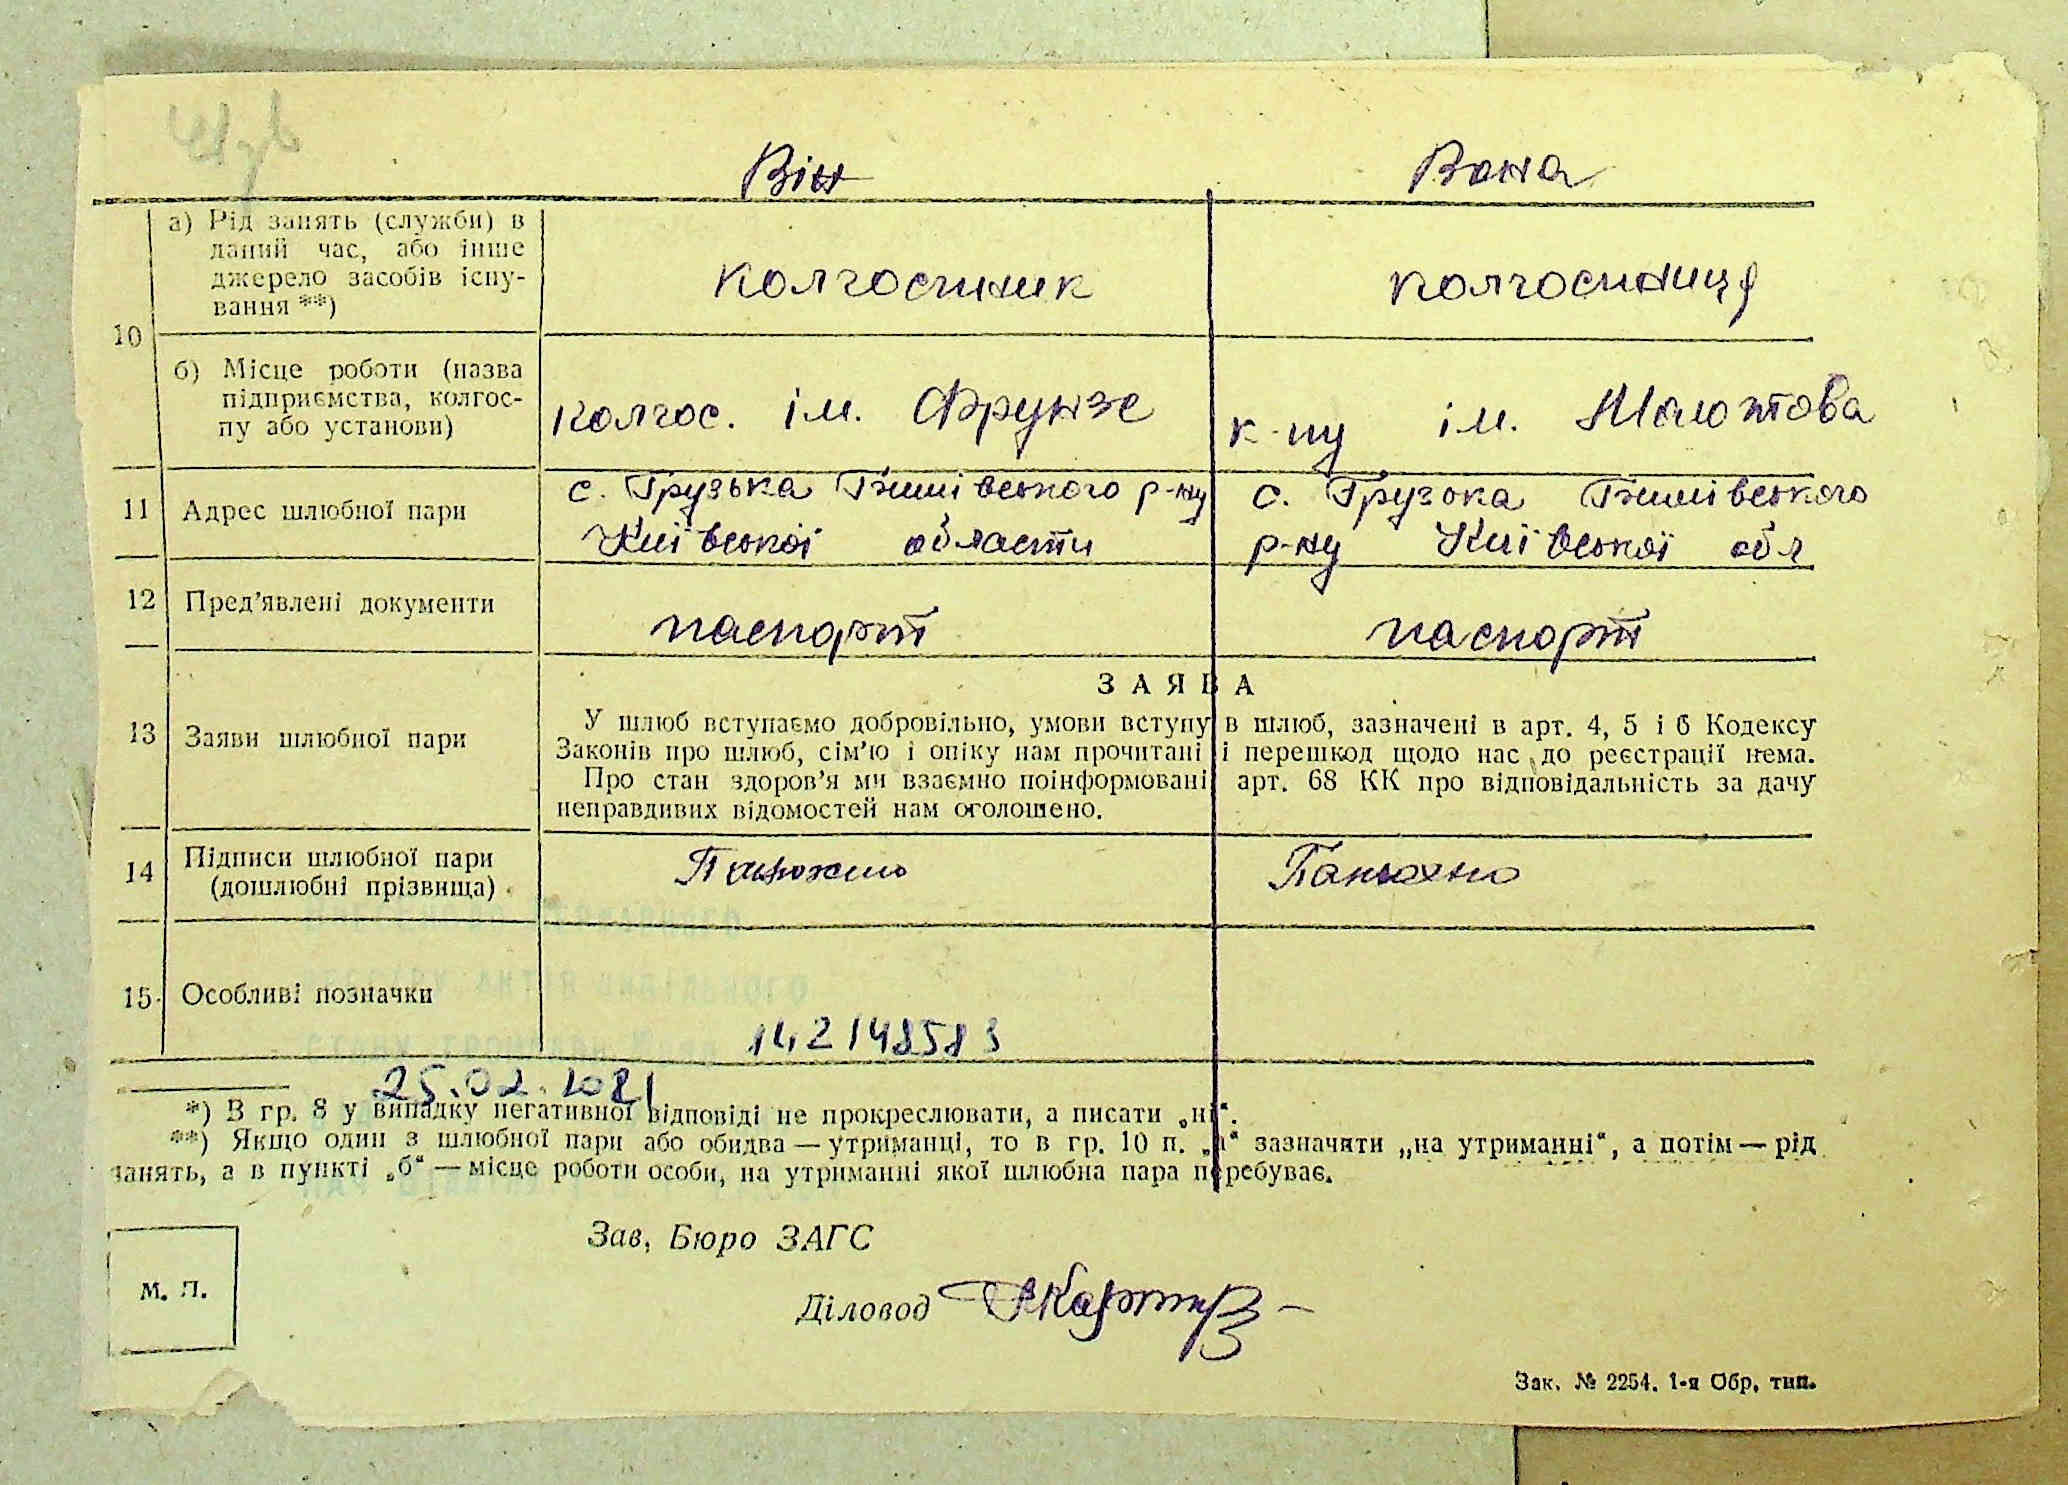 Він Вона
а) Рід занять (служби) в
даний час, або інше
джерело засобів існу-
вання **)
колгоспник колгоспниця
10
б) Місце роботи (назва
підприємства, колгос-
пу або установи)
колгос. ім. Фрунзе к-пу ім. Молотова
11 Адрес шлюбної пари
с. Грузька Бишівського р-ну с. Грузька Бишівського
Київської области р-ну Київської обл
12 Пред'явлені документи
паспорт паспорт
ЗАЯВА
13 Заяви шлюбної пари
У шлюб вступаємо добровільно, умови вступу в шлюб, зазначені в арт. 4, 5 і 6 Кодексу
Законів про шлюб, сім'ю і опіку нам прочитані і перешкод щодо нас до реєстрації нема.
Про стан здоров'я ми взаємно поінформовані арт. 68 КК про відповідальність за дачу
неправдивих відомостей нам оголошено.
14 Підписи шлюбної пари
(дошлюбні прізвища)
15 Особливі позначки
25.02.2021
*) В гр. 8 у випадку негативної відповіді не прокреслювати, а писати „ні“.
**) Якщо один з шлюбної пари або обидва — утриманці, то в гр. 10 п. „а“ зазначити „на утриманні“, а потім — рід
занять, а в пункті „б“ — місце роботи особи, на утриманні якої шлюбна пара перебуває.
Зав, Бюро ЗАГС
М. П.
Діловод
Зак. № 2254. 1-я Обр, тип.